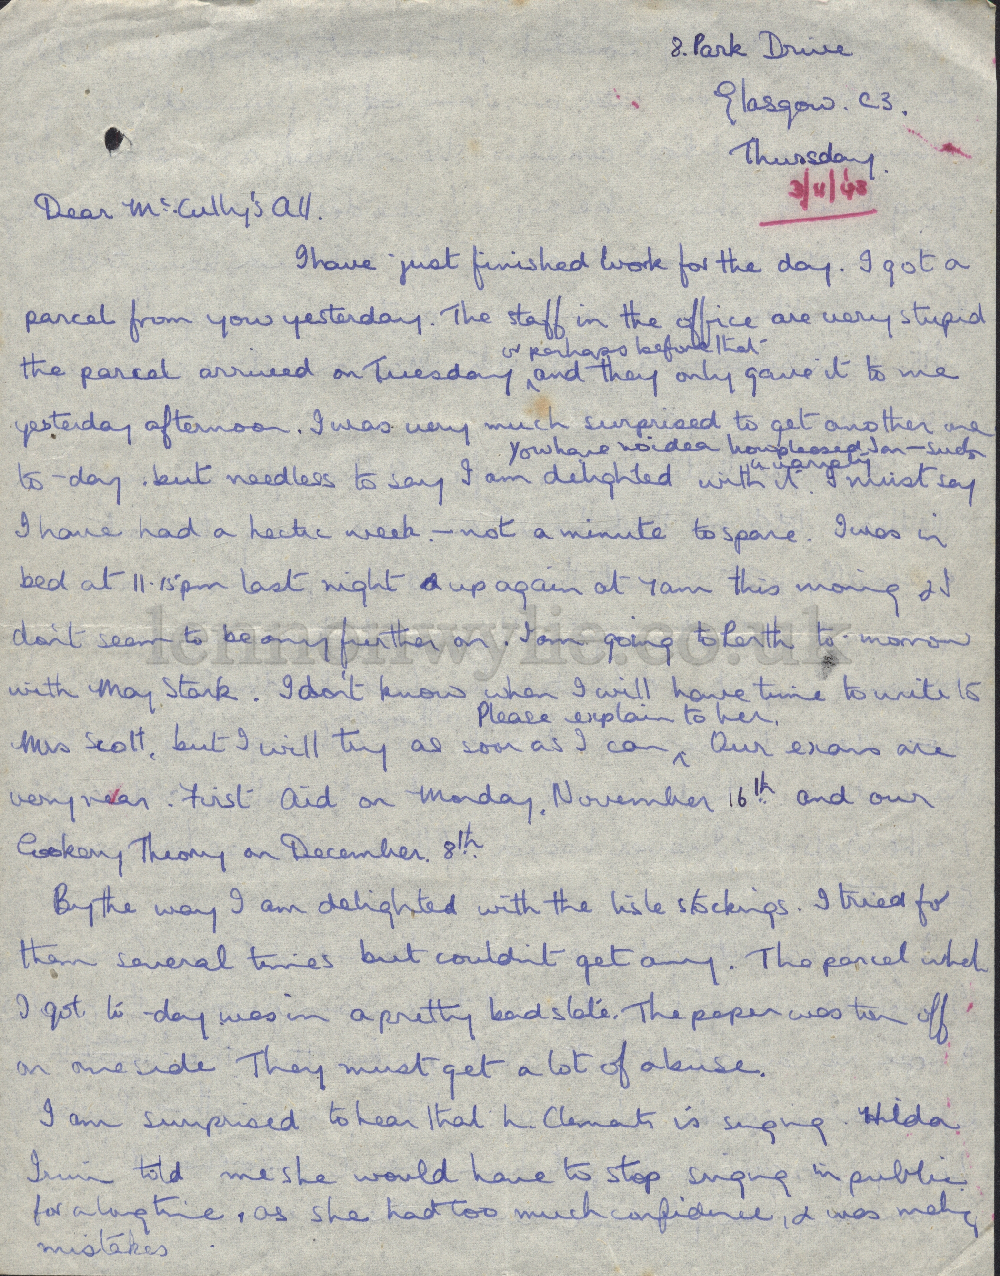 8. Park Drive
Glasgow. C3.
Thursday.
3/11/43
Dear Mc.Cully's All.
I have just finished work for the day. I got a
parcel from you yesterday. The staff in the office are very stupid
or perhaps before that
the parcel arrived on Tuesday ^ and they only gave it to me
yesterday afternoon. I was very much surprised to get another one
you have no idea how pleased I am - such
a variety
to-day. but needless to say I am delighted with it. I must say
I have had a hectic week. - not a minute to spare. I was in
bed at 11.15pm last night & up again at 7am this moring & I
don't seem to be any further on. I am going to Perth to-morrow
with May Stark. I don't know when I will have time to write to
Please explain to her.
Mrs Scott, but I will try as soon as I can ^ Our exams are
very near. First Aid on Monday, November 16th. and our
Cookery Theory on December. 8th.
By the way I am delighted with the lisle stockings. I tried for
them several times but couldn't get any. The parcel which
I got to-day was in a pretty bad state. The paper was torn off
on one side They must get a lot of abuse.
I am surprised to hear that L. Clements is singing. Hilda
Irwin told me she would have to stop singing in public
for a long time, as she had too much confidence, & was making
mistakes.
lennonwylie.co.uk